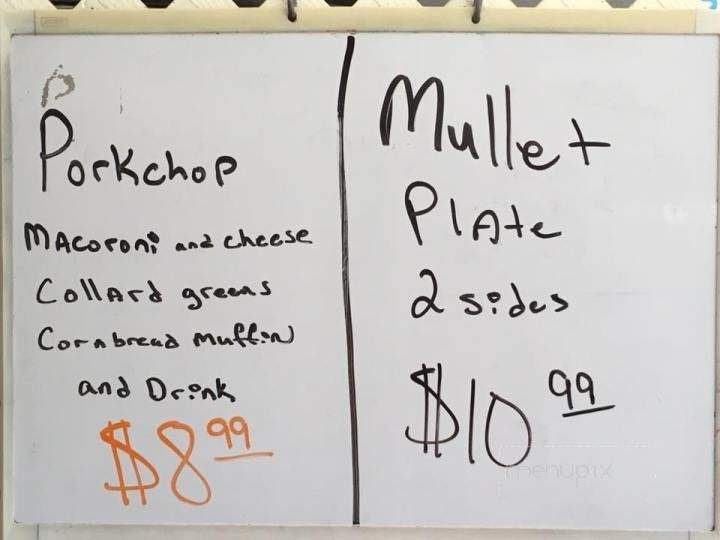 P
Porkchop
Macoroni and cheese
Collard greens
Cornbread muffin
and Drink
$8 99
Mullet
Plate
2 sides
$10 99
menupix